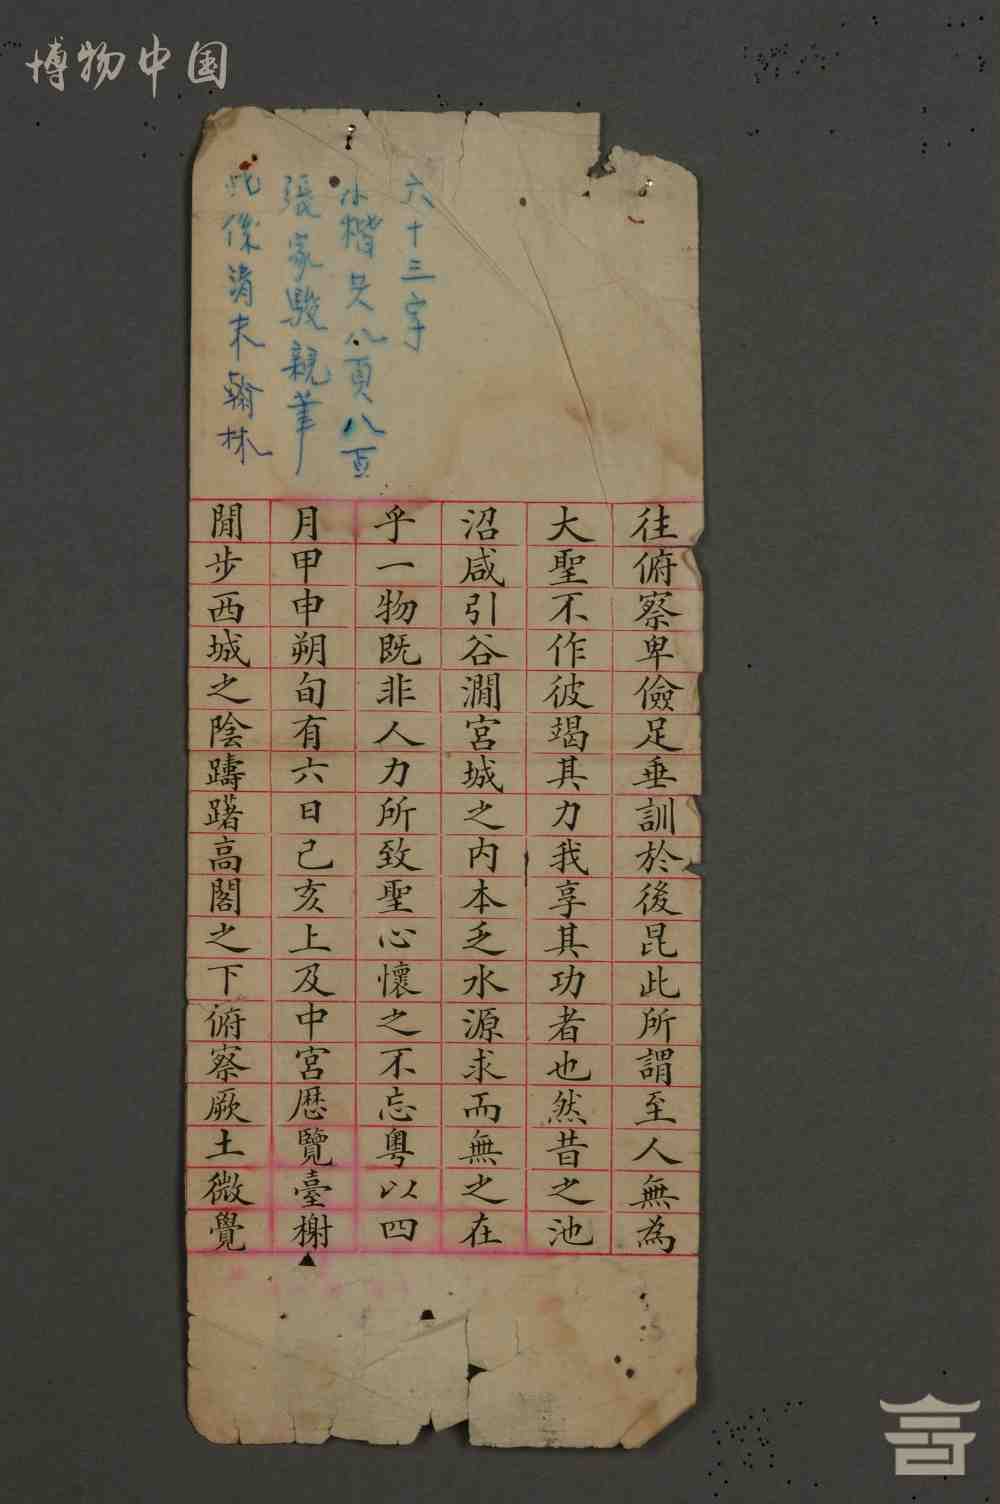 博物中国
此係清末翰林
張家駿親筆
小楷共八頁八百
六十三字
往俯察卑儉足垂訓於後昆此所謂至人無為
大聖不作彼竭其力我享其功者也然昔之池
沼咸引谷澗宮城之内本乏水源求而無之在
乎一物既非人力所致聖心懷之不忘粵以四
月甲申朔旬有六日己亥上及中宮暦覽臺榭
閒步西城之陰躊躇高閣之下俯察厥土微覺